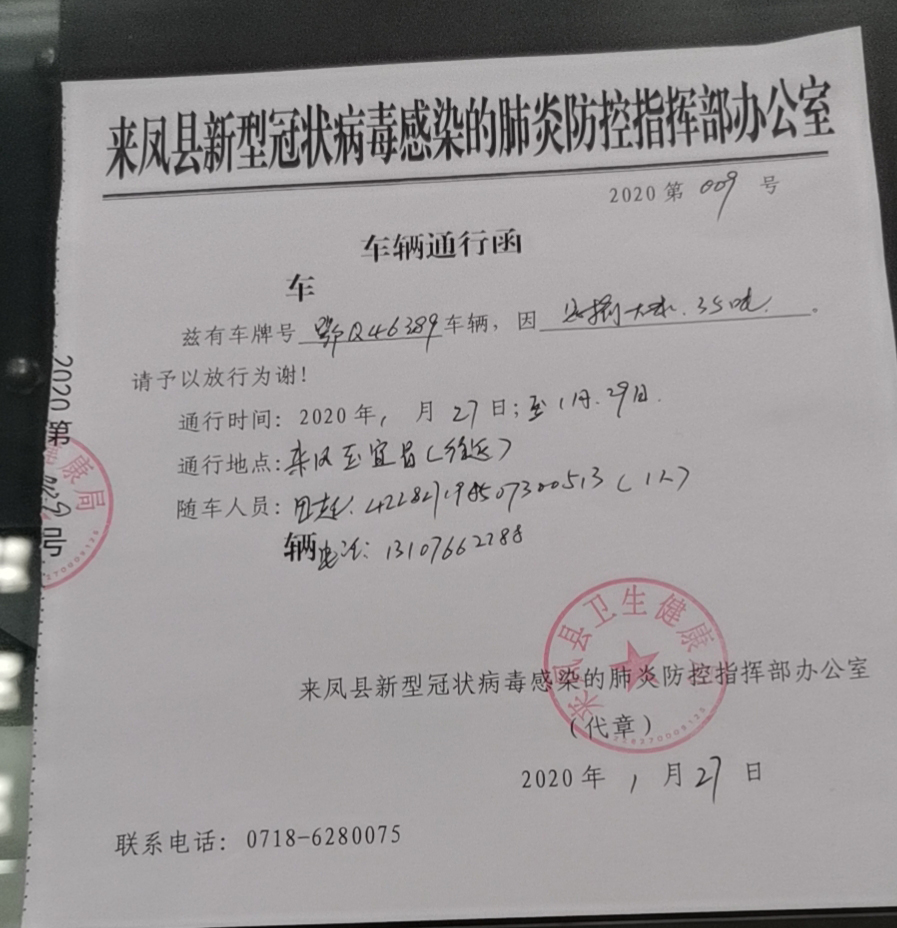 来凤县新型冠状病毒感染的肺炎防控指挥部办公室
2020 第 009 号
车辆通行函
车
兹有车牌号 鄂Q46389 车辆，因 35吨 。
请予以放行为谢！
通行时间：2020 年 1 月 27 日；至 1月.29日.
通行地点：来凤至宜昌（往返）
随车人员： （1人）
辆 电话：13107662288
2020 第
号
康局
来凤县卫生健康
来凤县新型冠状病毒感染的肺炎防控指挥部办公室
（代章）
2020 年 1 月 27 日
联系电话：0718-6280075